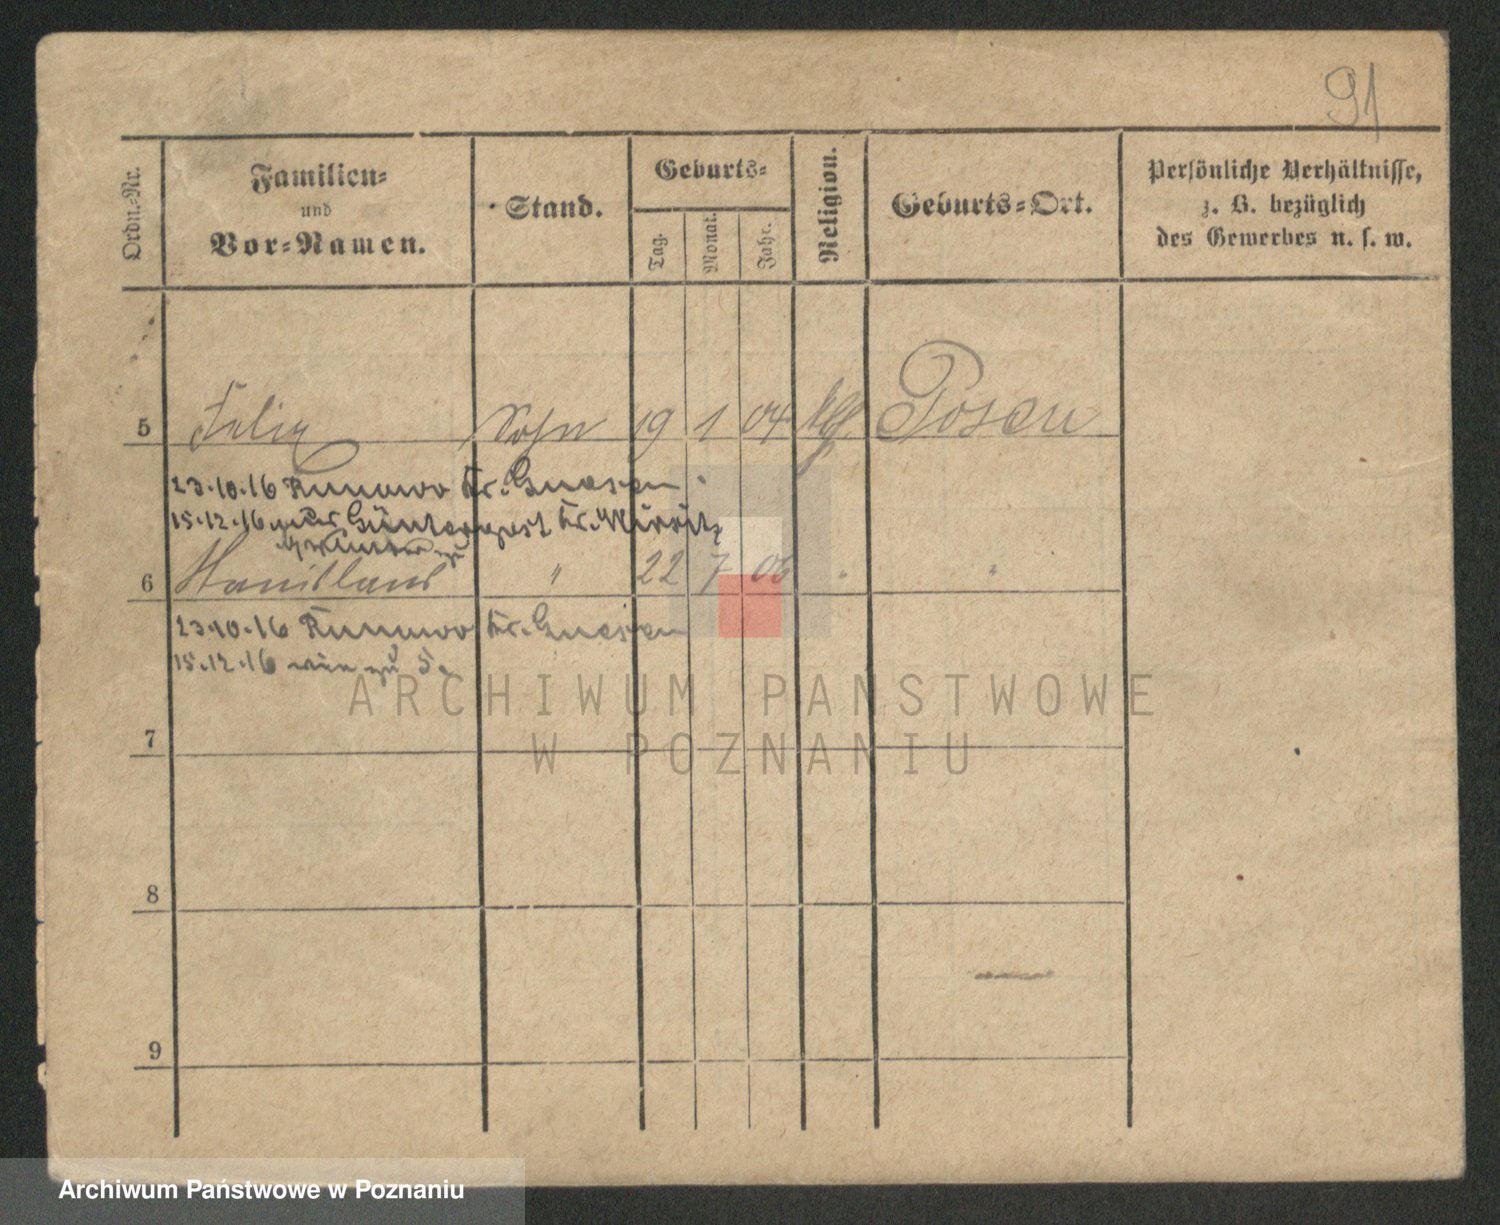 91
Ordn.-Nr.
Familien-
und
Vor-Namen.
Stand.
Geburts-
Tag.
Monat.
Jahr.
Religion.
Geburts-Ort.
Persönliche Verhältnisse,
z. B. bezüglich
des Gewerbes u. s. w.
5 Felix Sohn 19 1 04 kth Posen
23.10.16 Runowo Kr. Gnesen
15.12.16 Güntergost Kr. Wirsitz
6 Stanislaus " 22 7 06 " "
23.10.16 Runowo Kr. Gnesen
15.12.16 wie zu 5.
7
8
9
ARCHIWUM PAŃSTWOWE
W POZNANIU
Archiwum Państwowe w Poznaniu